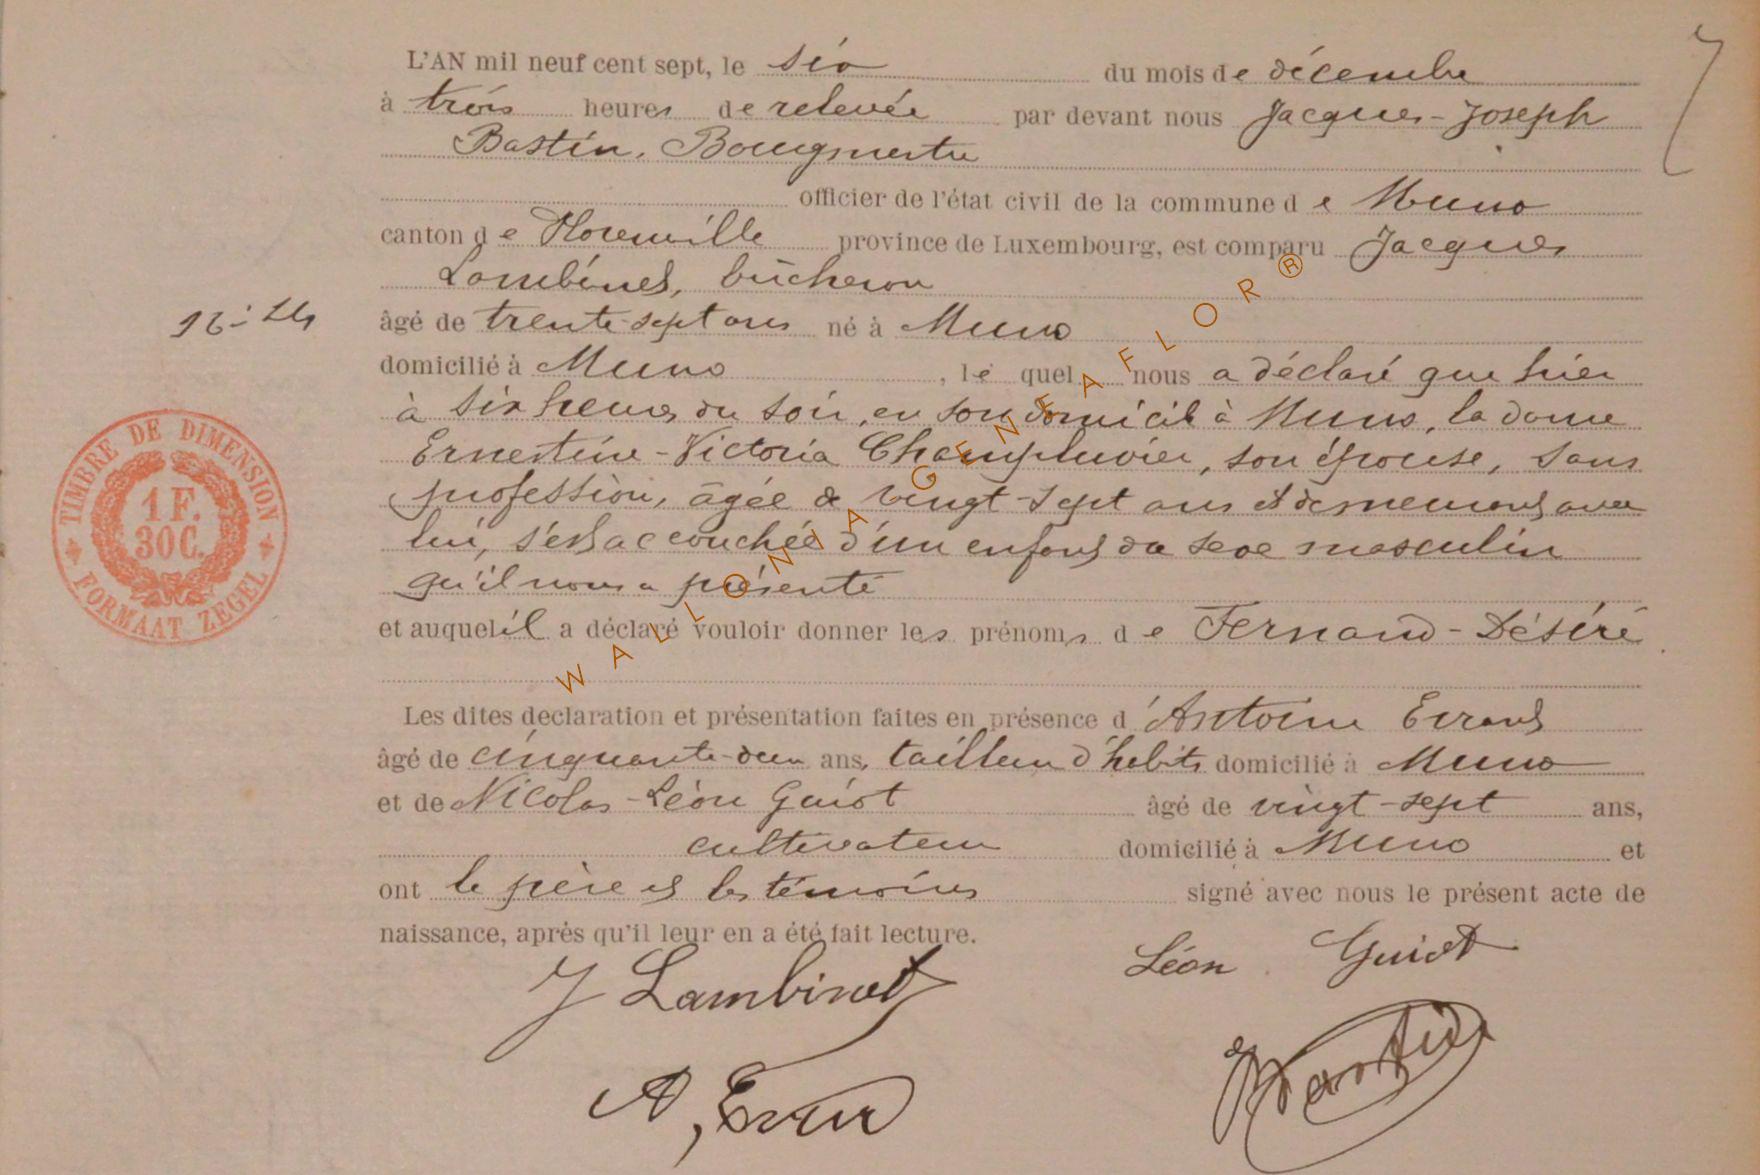 L'AN mil neuf cent sept, le six du mois de décembre
à trois heures de relevée par devant nous Jacques-Joseph
Bastin, Bourgmestre
officier de l'état civil de la commune de Muno
canton de Florenville province de Luxembourg, est comparu Jacques
Lambinet, bûcheron
16-24
âgé de trente-sept ans né à Muno
domicilié à Muno, lequel nous a déclaré que hier
à six heures du soir, en son domicile à Muno, la dame
Ernestine-Victoria Champluvier, son épouse, sans
profession, âgée de vingt-sept ans et demeurant avec
lui, s'est accouchée d'un enfant du sexe masculin
qu'il nous a présenté
et auquel il a déclaré vouloir donner les prénoms de Fernand-Désiré
Les dites declaration et présentation faites en présence d'Antoine
âgé de cinquante-deux ans, tailleur d'habits domicilié à Muno
et de Nicolas-Léon Guiot âgé de vingt-sept ans,
cultivateur domicilié à Muno et
ont le père et les témoins signé avec nous le présent acte de
naissance, après qu'il leur en a été fait lecture.
J Lambinet
Léon Guiot
A,
TIMBRE DE DIMENSION
1 F.
30 C.
FORMAAT ZEGEL
WALLONIA GENEAFLOR®